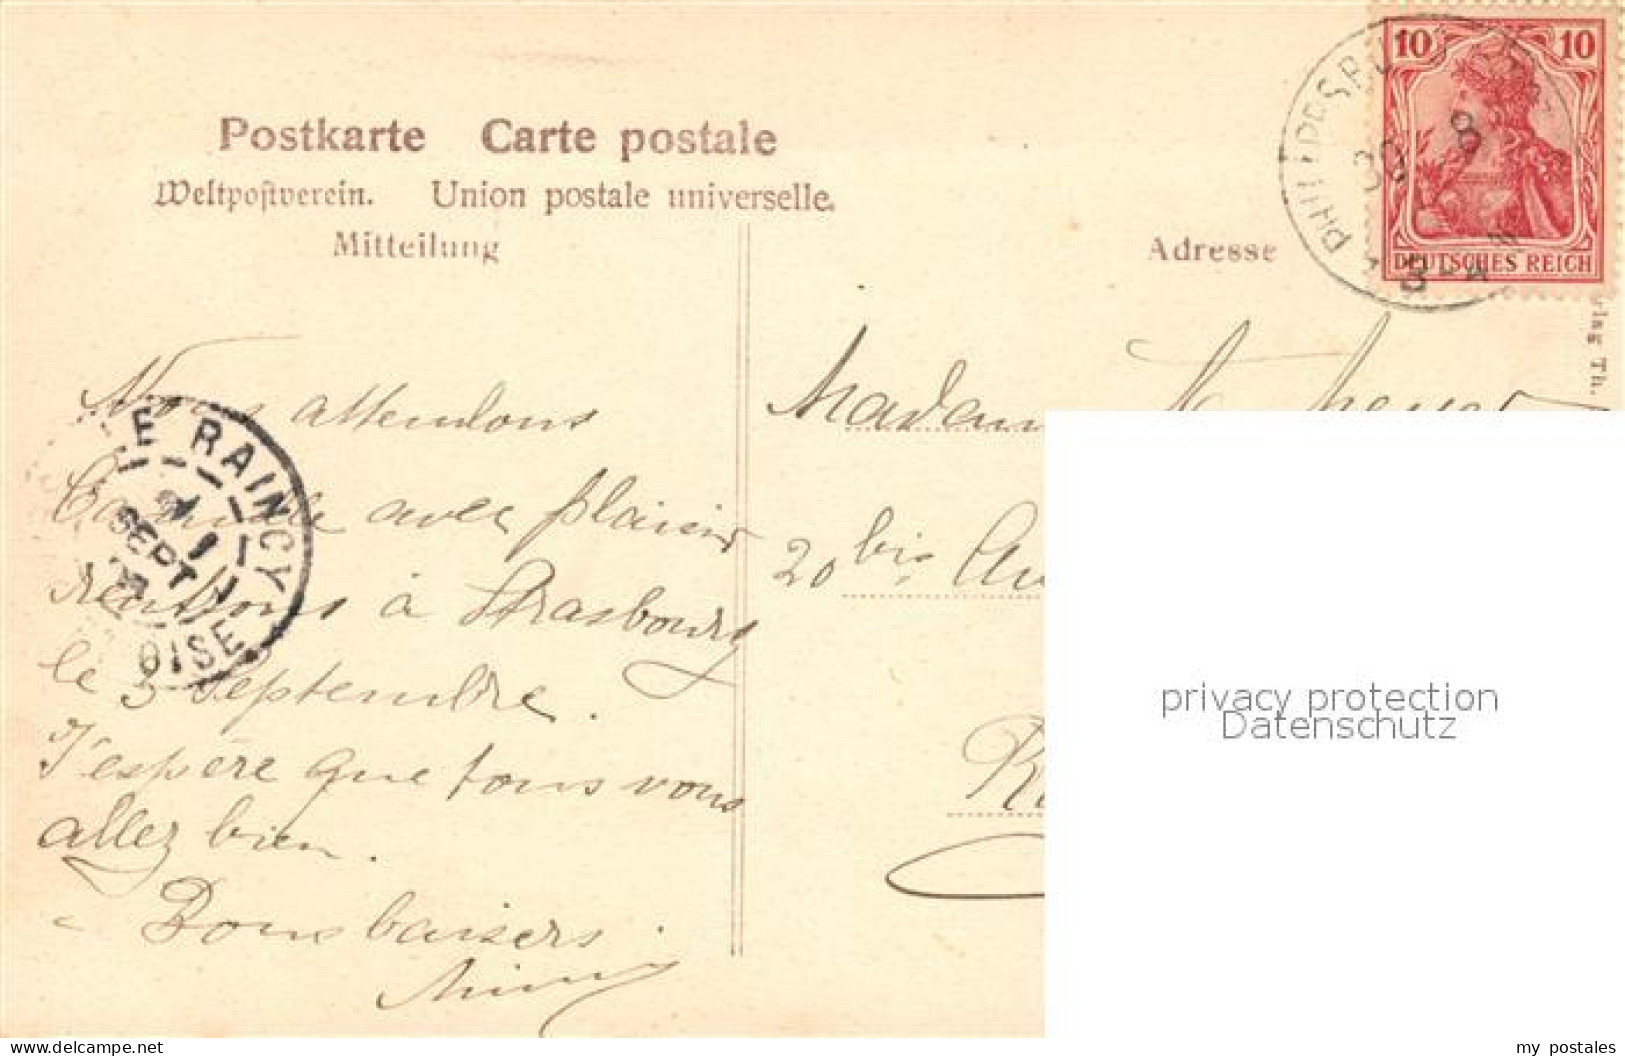 Postkarte Carte postale
Weltpostverein. Union postale universelle.
Mitteilung
Adresse
10 10
DEUTSCHES REICH
PHILIPPSBU
30 8
LE RAINCY
SEPT
OISE
Nous attendons
Camille avec plaisir
rentrons à Strasbourg
le 3 septembre.
J'espère que tous vous
allez bien.
Bons baisers.
Madam
20 bis Av
privacy protection
Datenschutz
rlag Th.
delcampe.net my postales